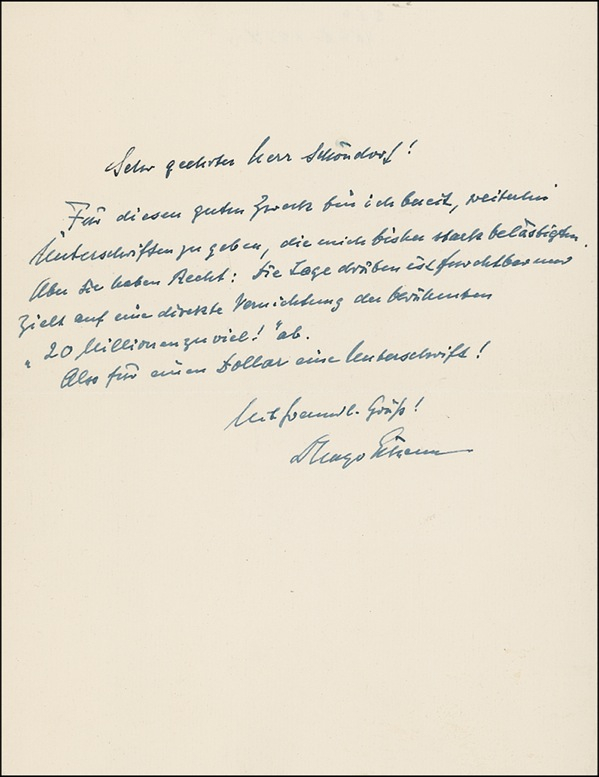 Sehr geehrter Herr Schöndorf!
Für diesen guten Zweck bin ich bereit, weiterhin
Unterschriften zu geben, die mich bisher stark belästigten.
Aber Sie haben Recht: Die Lage drüben ist furchtbar und
zielt auf eine direkte Vernichtung der berühmten
"20 Millionen zu viel!" ab.
Also für einen Dollar eine Unterschrift!
Mit freundl. Gruß!
Hugo